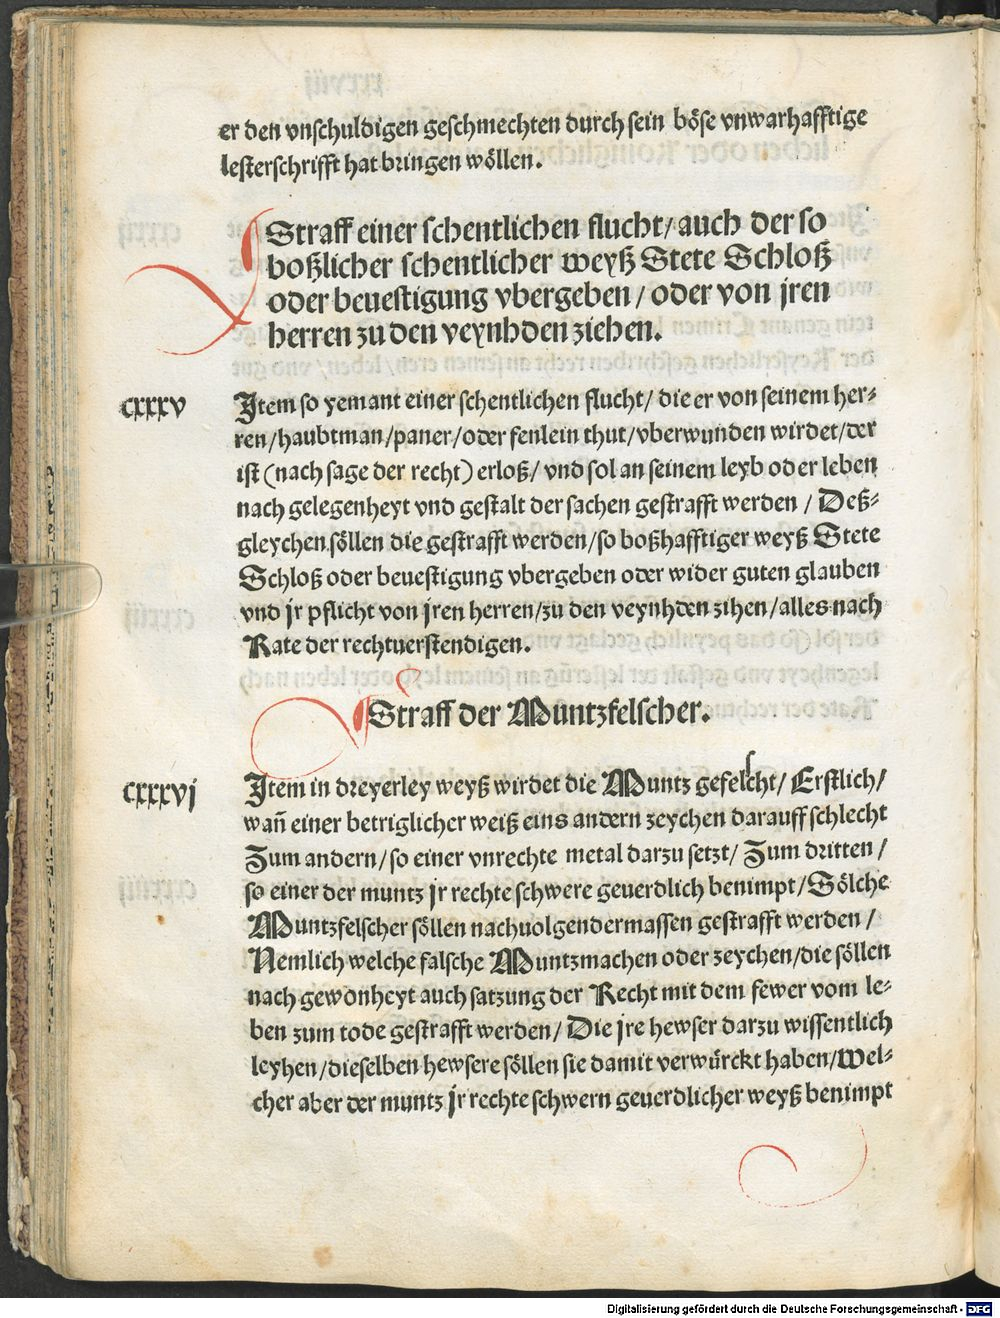 er den vnschuldigen geschmechten durch sein böse vnwarhafftige
lesterschrifft hat bringen wöllen.
Straff einer schentlichen flucht/ auch der so
boßlicher schentlicher weyß Stete Schloß
oder beuestigung vbergeben / oder von jren
herren zu den veynhden ziehen.
cxxxv
Item so yemant einer schentlichen flucht/ die er von seinem her⸗
ren/haubtman/paner/oder fenlein thut/vberwunden wirdet/der
ist (nach sage der recht) erloß/ vnd sol an seinem leyb oder leben
nach gelegenheyt vnd gestalt der sachen gestrafft werden / Deß⸗
gleychen söllen die gestrafft werden/so boßhafftiger weyß Stete
Schloß oder beuestigung vbergeben oder wider guten glauben
vnd jr pflicht von jren herren/zu den veynhden zihen/alles nach
Rate der rechtuerstendigen.
Straff der Muntzfelscher.
cxxxvj
Item in dreyerley weyß wirdet die Muntz gefelscht/ Erstlich/
wañ einer betriglicher weiß eins andern zeychen darauff schlecht
Zum andern/so einer vnrechte metal darzu setzt/ Zum dritten /
so einer der muntz jr rechte schwere geuerdlich benimpt/Sölche
Muntzfelscher söllen nachuolgendermassen gestrafft werden /
Nemlich welche falsche Muntzmachen oder zeychen/die söllen
nach gewonheyt auch satzung der Recht mit dem fewer vom le⸗
ben zum tode gestrafft werden/ Die jre hewser darzu wissentlich
leyhen/dieselben hewsere söllen sie damit verwürckt haben/wel⸗
cher aber der muntz jr rechte schwern geuerdlicher weyß benimpt
Digitalisierung gefördert durch die Deutsche Forschungsgemeinschaft - DFG